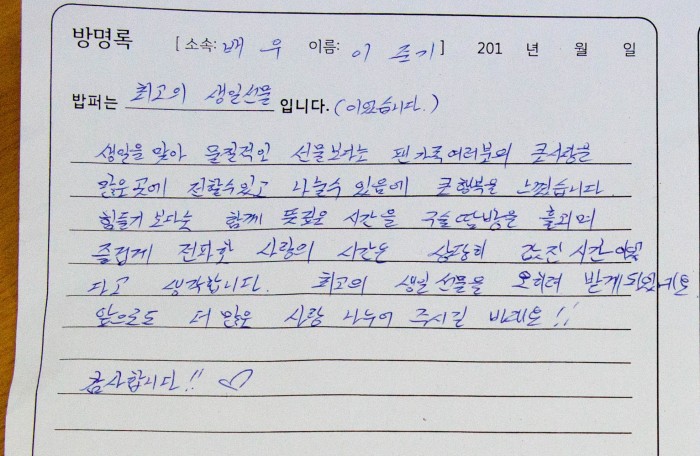 방명록 [소속: 배우 이름: 이준기] 201 년 월 일
밥퍼는 최고의 생일선물 입니다. (이었습니다.)
생일을 맞아 물질적인 선물보다는 팬가족여러분의 큰사랑을
많은곳에 전할수있고 나눌수 있음에 큰행복을 느꼈습니다.
힘들기 보다는 함께 뜻깊은 시간을 구슬땀방울을 흘리며
즐겁게 전파한 사랑의 시간은 상당히 값진 시간이었
다고 생각합니다. 최고의 생일선물을 오히려 받게되었네요
앞으로도 더 많은 사랑 나누어 주시길 바래요!!
감사합니다!! ♡